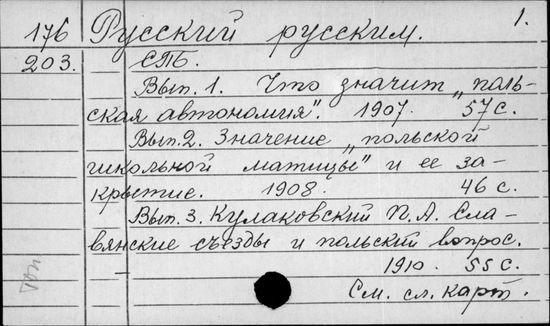 1.
176 Русский русским.
203. СПБ.
Вып. 1. Что значит „поль-
ская автономия". 1907. 57 с.
Вып. 2. Значение „польской
школьной матицы" и ее за-
крытие. 1908. 46 с.
Вып. 3. Кулаковский П. А. Сла-
вянские съезды и польский вопрос.
1910. 55 с.
См. сл. карт.